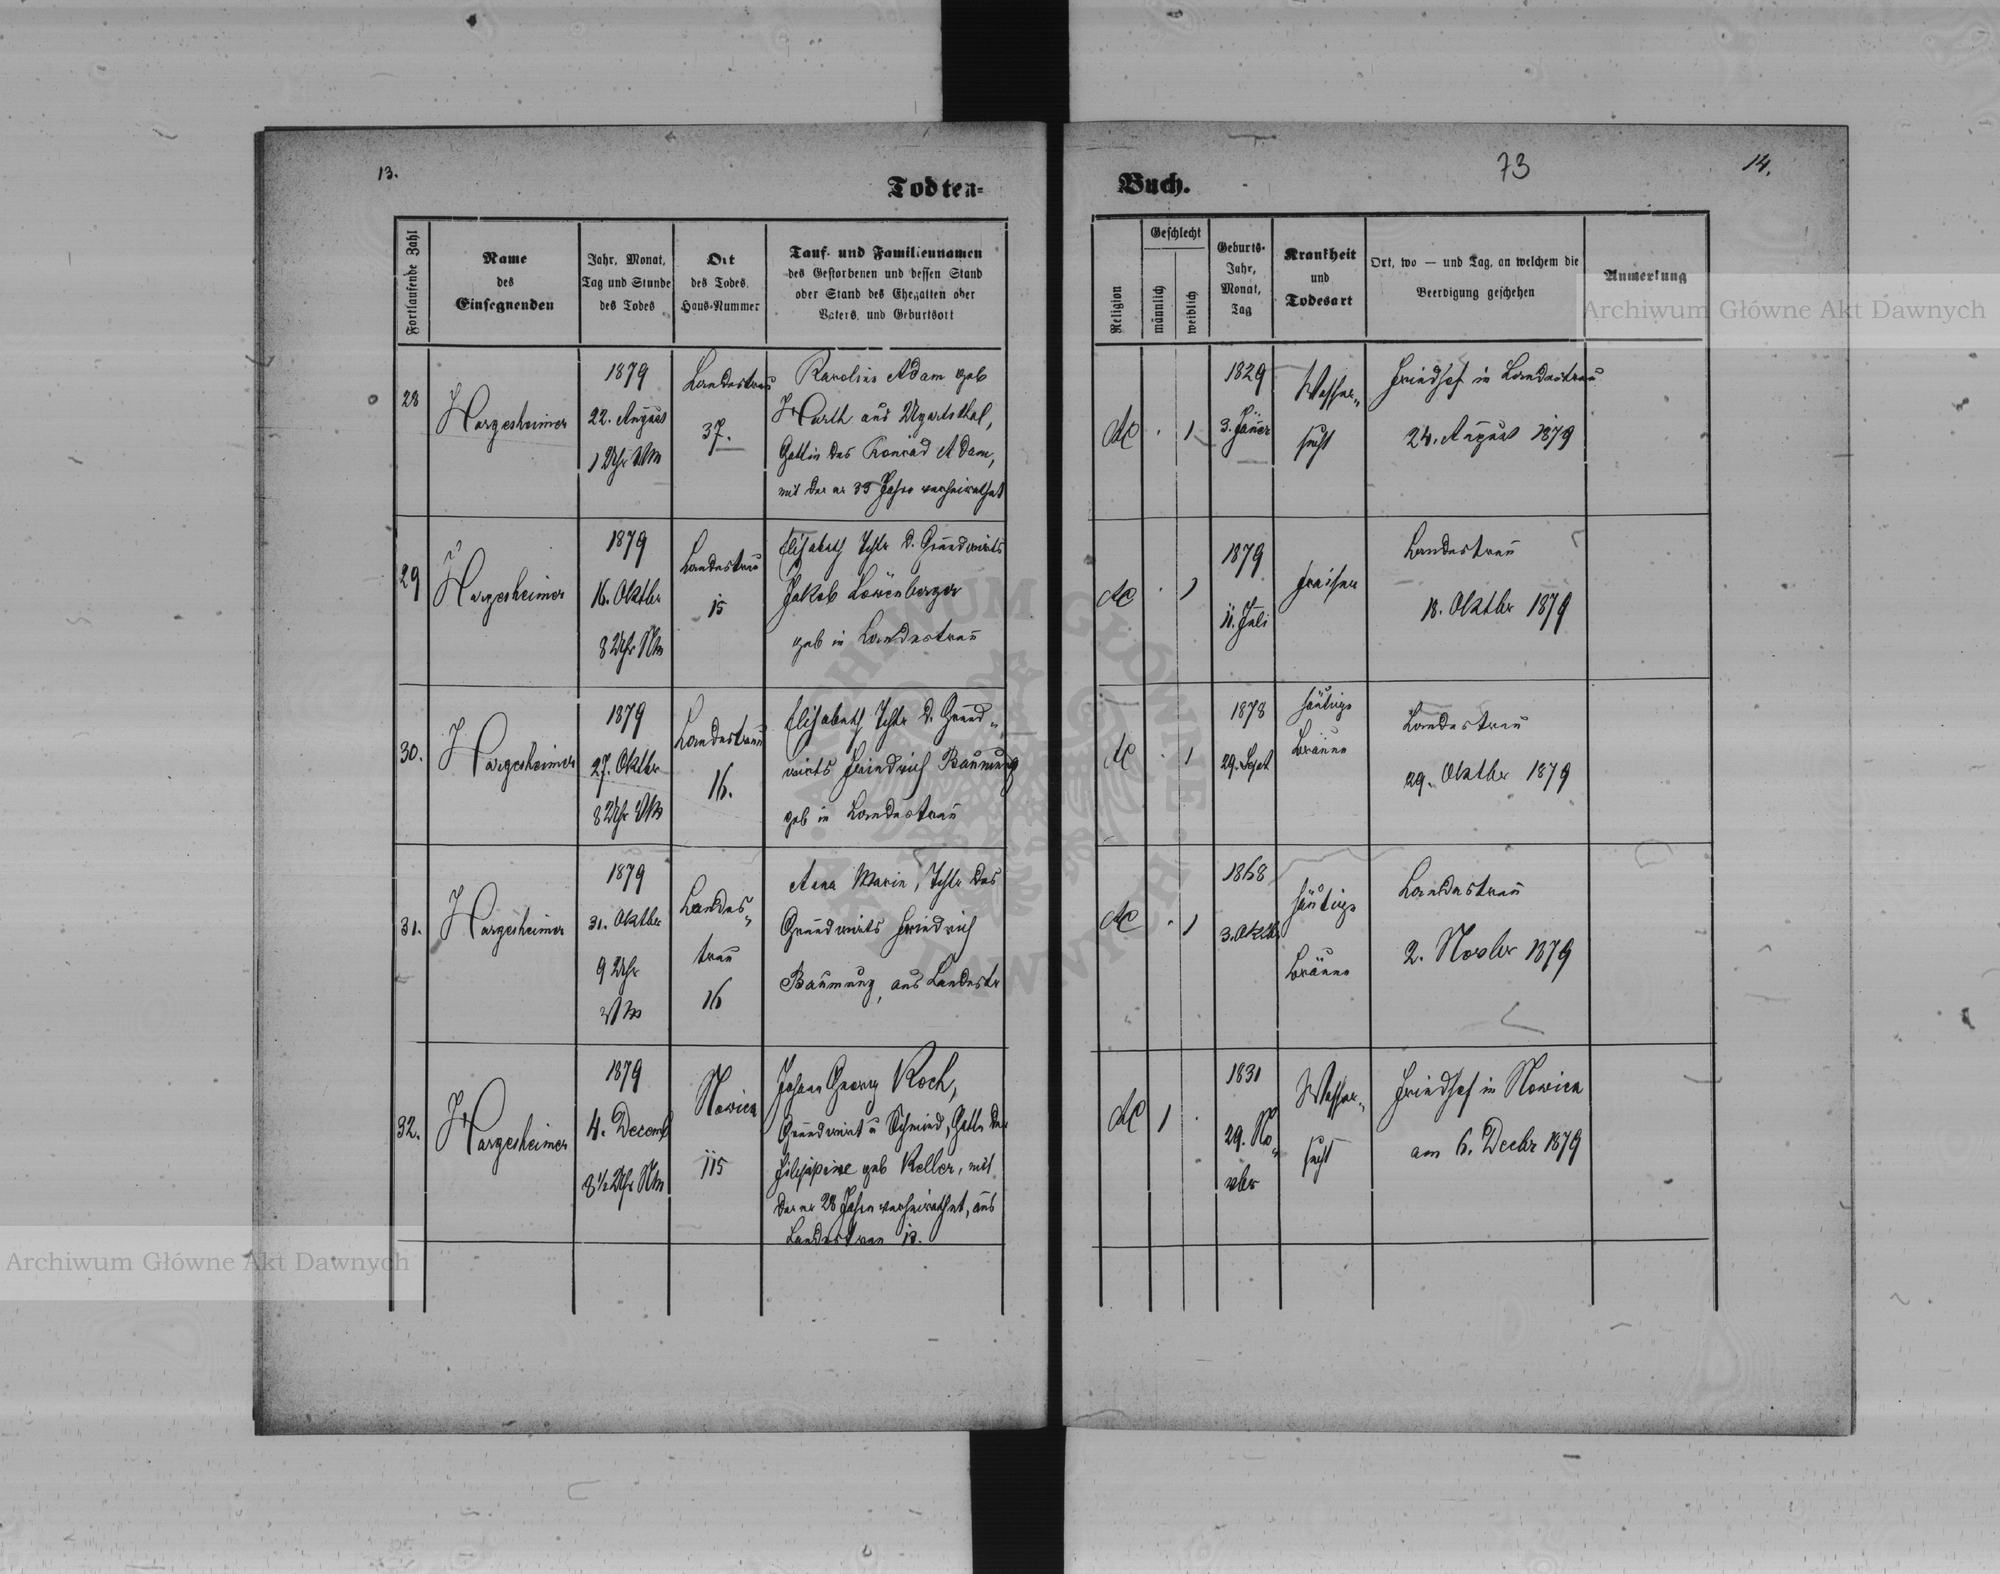 13.
Todten-
Buch.
73
14.
Fortlaufende Zahl
Name
des
Einsegnenden
Jahr, Monat,
Tag und Stunde
des Todes
Ort
des Todes,
Haus-Nummer
Tauf- und Familiennamen
des Gestorbenen und dessen Stand
oder Stand des Ehegatten oder
Vaters, und Geburtsort
Religion
Geschlecht
männlich
weiblich
Geburts-
Jahr,
Monat,
Tag
Krankheit
und
Todesart
Ort, wo — und Tag, an welchem die
Beerdigung geschehen
Anmerkung
28
Hargesheimer
1879
22. August
1 Uhr VM
Landestreu
37.
Karoline Adam geb
Harth aus Ugartsthal,
Gattin des Konrad Adam,
mit der er 33 Jahre verheirathet
1
1829
3. Jäner
Wasser-
sucht
Friedhof in Landestreu
24. August 1879
29
Hargesheimer
1879
16. Oktbr
8 Uhr NM
Landestreu
15
Elisabeth Tchtr d. Grundwirts
Jakob Löwenberger
geb in Landestreu
1
1879
11. Juli
Fraisen
Landestreu
18. Oktbr 1879
30.
Hargesheimer
1879
27. Oktbr
8 Uhr VM
Landestreu
16.
Elisabeth Tchtr d. Grund-
wirts Friedrich Baumung
geb in Landestreu
1
1878
29. Sept
häutige
Bräune
Landestreu
29. Oktbr 1879
31.
Hargesheimer
1879
31. Oktbr
9 Uhr
VM
Landes-
treu
16
Anna Marie, Tchtr des
Grundwirts Friedrich
Baumung, aus Landestr
1
1868
3. Oktbr
häutige
Bräune
Landestreu
2. Novbr 1879
32.
Hargesheimer
1879
4. Decemb
8½ Uhr NM
Nowica
115
Johann Georg Koch,
Grundwirt u Schmied, Gatte der
Filippine geb Keller, mit
der er 28 Jahre verheirathet, aus
Landestreu 13.
1
1831
29. No-
vbr
Wasser-
sucht
Friedhof in Nowica
am 6. Decbr 1879
Archiwum Główne Akt Dawnych
Archiwum Główne Akt Dawnych
ARCHIWUM GŁÓWNE AKT DAWNYCH